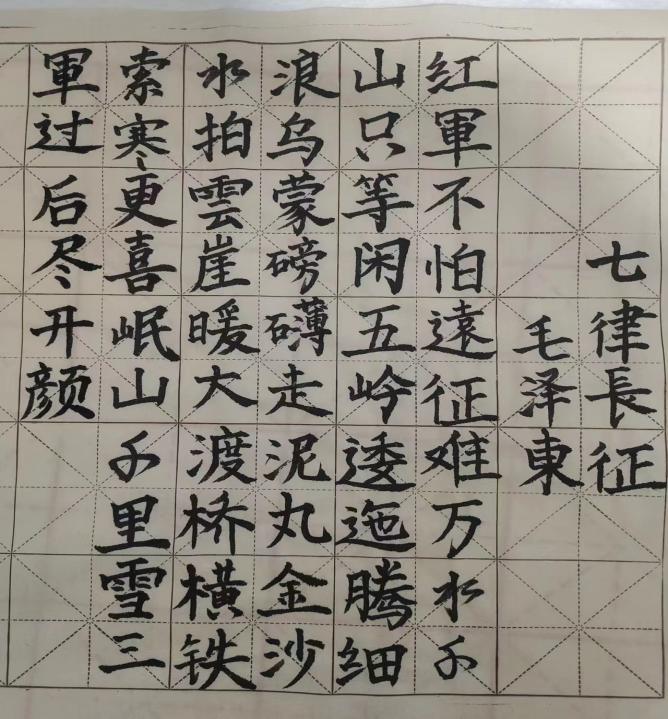 七律長征
毛泽東
红軍不怕遠征难万水千
山只等闲五岭逶迤腾细
浪乌蒙磅礴走泥丸金沙
水拍雲崖暖大渡桥横铁
索寒更喜岷山千里雪三
軍过后尽开颜